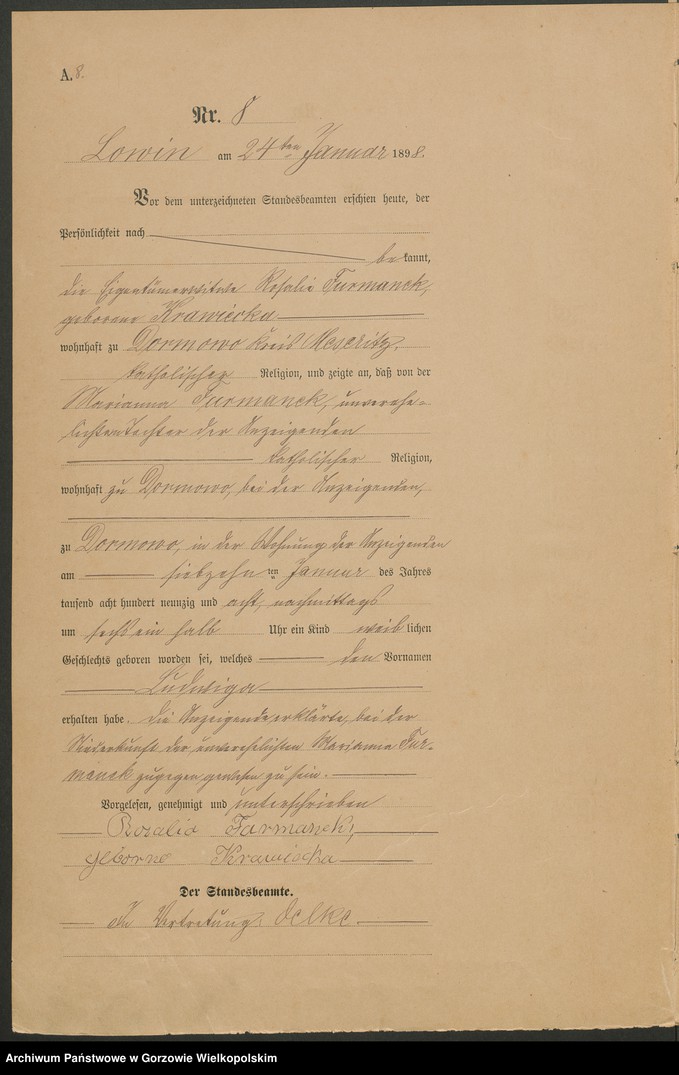 A. 8.
Nr. 8
Lowin am 24ten Januar 1898.
Vor dem unterzeichneten Standesbeamten erschien heute, der
Persönlichkeit nach
be kannt,
die Eigentümerwitwe Rosalie Furmanek,
geborene Krawiecka
wohnhaft zu Dormowo Kreis Meseritz,
katholischer Religion, und zeigte an, daß von der
Marianna Furmanek, unverehe-
lichten Tochter der Anzeigenden
katholischer Religion,
wohnhaft zu Dormowo, bei der Anzeigenden,
zu Dormowo, in der Wohnung der Anzeigenden
am siebzehn ten Januar des Jahres
tausend acht hundert neunzig und acht, nachmittags
um sechs ein halb Uhr ein Kind weib lichen
Geschlechts geboren worden sei, welches den Vornamen
Ludwiga
erhalten habe. Die Anzeigende erklärte, bei der
Niederkunft der unverehelichten Marianna Fur-
manek zugegen gewesen zu sein.
Vorgelesen, genehmigt und unterschrieben
Rozalia Furmanek,
geborne Krawiecka
Der Standesbeamte.
In Vertretung. Oelke
Archiwum Państwowe w Gorzowie Wielkopolskim